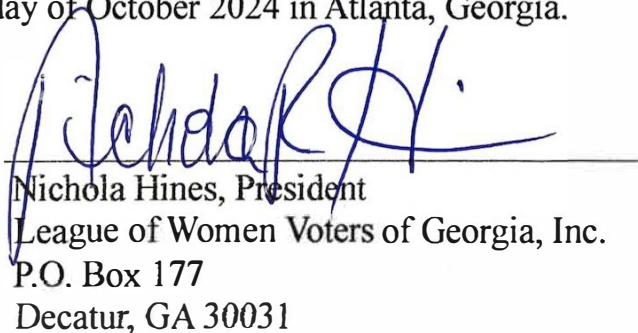 day of October 2024 in Atlanta, Georgia.
Nichola Hines, President
League of Women Voters of Georgia, Inc.
P.O. Box 177
Decatur, GA 30031